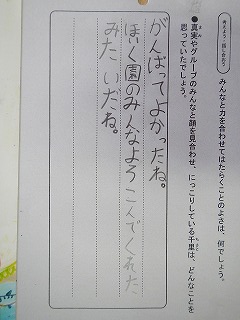 考えよう・話し合おう
みんなと力を合わせてはたらくことのよさは、何でしょう。
●真実やグループのみんなと顔を見合わせ、にっこりしている千里は、どんなことを
思っていたでしょう。
がんばってよかったね。
ほいく園のみんなよろこんでくれた
みたいだね。